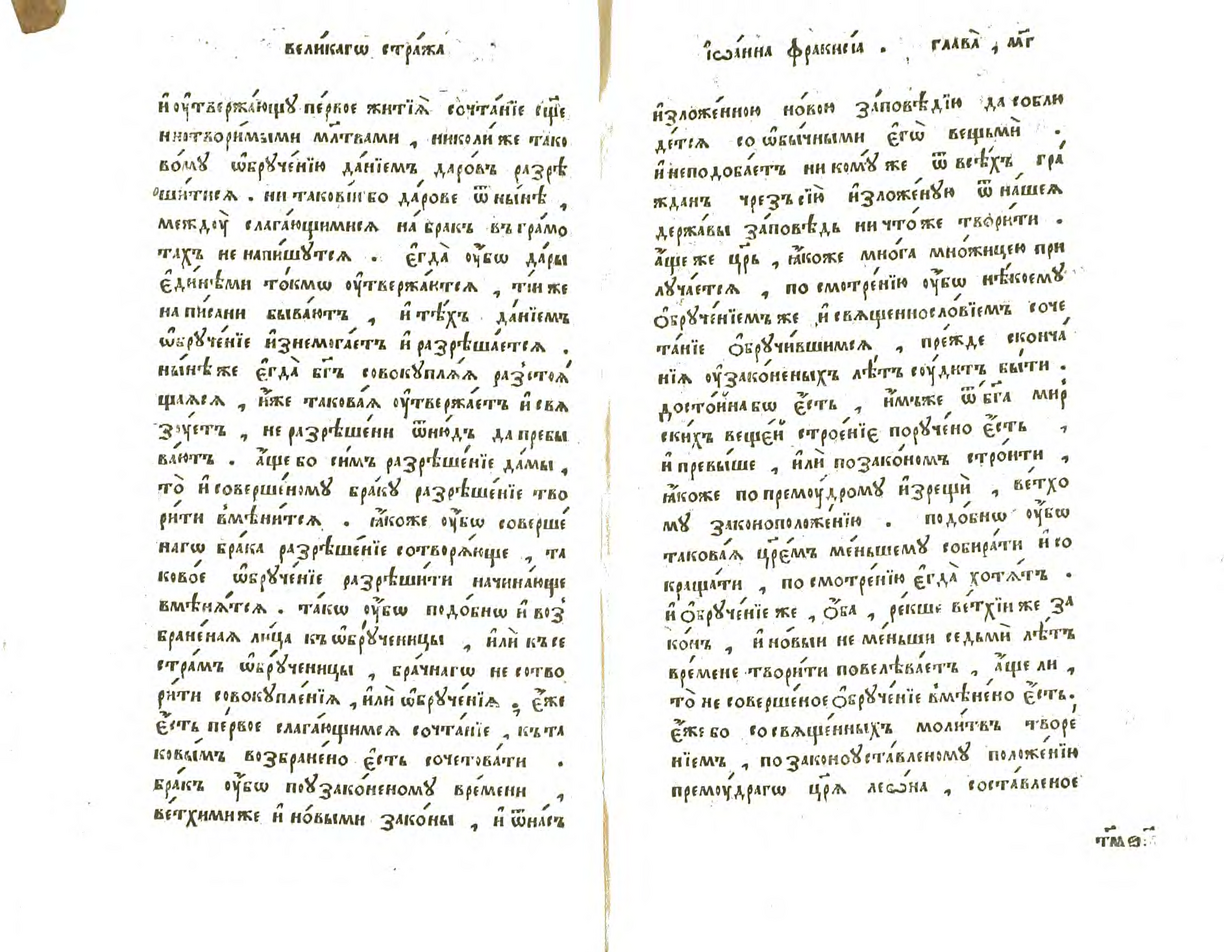 вели́кагѡ стра́жа
и҆ ѹ҆твержа́ющу пе́рвое житїѧ̀ сочта́нїе сщ҃е
ннотвори́мыми мл҃твами , николи́ же тако
во́му ѡ҆бруче́нїю да́нїемъ даро́въ разрѣ
ши́тисѧ . ни такові́и бо да́рове ѿ ны́нѣ ,
междѹ̀ слага́ющимисѧ на́ бракъ въ гра́мо
тахъ не напи́шутсѧ . є҆гда̀ ѹ҆́бѡ да́ры
є҆ди́нѣми то́кмѡ ѹ҆твержа́ютсѧ , ти́и же
на пи́сани быва́ютъ , и҆ тѣ́хъ да́нїемъ
ѡ҆бруче́нїе и҆знемога́етъ и҆ разрѣша́етсѧ .
ны́нѣ же є҆гда̀ бг҃ъ совокуплѧ́ѧ разстоѧ́
щаѧсѧ , и҆́же такова́ѧ ѹ҆твержа́етъ и҆ свѧ
зѹ́етъ , не разрѣше́ни ѿню́дъ да пребы
ва́ютъ . а҆́ще бо си́мъ разрѣше́нїе да́мы ,
то̀ и҆ соверше́ному бра́ку разрѣше́нїе тво
ри́ти вмѣни́тсѧ . ꙗ҆́коже ѹ҆́бѡ соверше́
нагѡ бра́ка разрѣше́нїе сотворѧ́юще , та
ково́е ѡ҆бруче́нїе разрѣши́ти начина́юще
вмѣнѧ́тсѧ . та́кѡ ѹ҆́бѡ подо́бнѡ и҆ воз
бране́наѧ ли́ца къ ѡ҆бру́ченицы , и҆лѝ къ се
стра́мъ ѡ҆бру́ченицы , бра́чнагѡ не сотво
ри́ти совокупле́нїѧ , и҆лѝ ѡ҆бруче́нїѧ . є҆́же
є҆́сть пе́рвое слага́ющимсѧ сочта́нїе , къ та
ковы́мъ возбране́но є҆́сть сочетова́ти .
бра́къ ѹ҆́бѡ по ѹ҆зако́неному вре́мени ,
ве́тхими же и҆ но́выми зако́ны , и҆ ѿ на́съ
і҆ѡа́нна фракисі́а . глава̀ , мг҃
и҆зложе́нною но́вою за́повѣдїю да соблю
де́тсѧ со ѡ҆бы́чными є҆гѡ̀ вещьмѝ .
и҆ не подоба́етъ ни кому́ же ѿ всѣ́хъ гра́
жданъ чрезъ сїю̀ и҆зложе́ную ѿ на́шеѧ
держа́вы за́повѣдь ни что́ же твори́ти .
а҆́ще же цр҃ь , ꙗ҆́коже мно́га мно́жицею при
луча́етсѧ , по смотре́нїю ѹ҆́бѡ нѣ́коему
ѻ҆бруче́нїемъ же и҆ свѧщеннословїемъ соче
та́нїе ѻ҆бручи́вшимсѧ , пре́жде сконча́
нїѧ ѹ҆зако́неныхъ лѣ́тъ сѹ́дитъ бы́ти .
досто́йна бѡ є҆́сть , и҆́мъже ѿ бг҃а мир
ски́хъ веще́й строе́нїе порѹче́но є҆́сть ,
и҆ превы́ше , и҆лѝ по зако́номъ стро́ити ,
ꙗ҆́коже по премѹ́дрому и҆зрещѝ , ве́тхо
му законоположе́нїю . подо́бнѡ ѹ҆́бѡ
такова́ѧ цр҃е́мъ ме́ньшему собира́ти и҆ со
краща́ти , по смотре́нїю є҆гда̀ хотѧ́тъ .
и҆ ѻ҆бруче́нїе же , ѻ҆́ба , ре́кше ве́тхїи же за
ко́нъ , и҆ но́выи не ме́ньши седьмѝ лѣ́тъ
вре́мене твори́ти повелѣва́етъ , а҆́ще ли ,
то̀ не соверше́ное ѻ҆бруче́нїе вмѣне́но є҆́сть.
є҆́же бо со свѧще́нныхъ моли́твъ творе́
нїемъ , по законоуста́вленому положе́нїю
премѹ́драгѡ цр҃ѧ леѡ́на , соста́вленое
тм҃ѳ